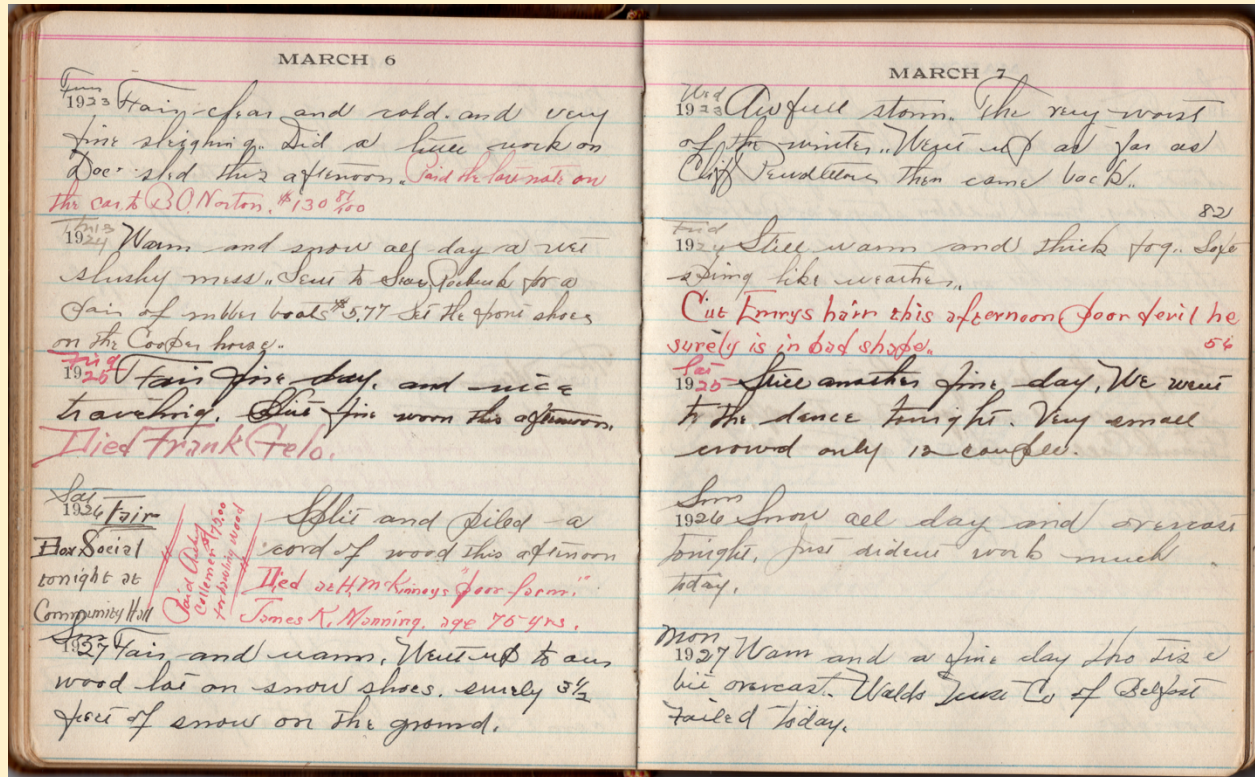 MARCH 6
Tues
1923 Fair clear and cold. and very
fine sleighing.. Did a little work on
Doc' sled this afternoon. Paid the late note on
the car. to B.O. Norton. $130 81/100
Thurs
1924 Warm and snow all day a wet
slushy mess.. Sent to Sears Roebuck for a
pair of rubber boats $5.77 Set the front shoes
on the Cooper horse..
Frid
1925 Fair fine day. and nice
traveling. fine worn this afternoon.
Died Frank Gelo.
Sat
1926 Fair
Box Social
tonight at
Community Hall
Paid
$75.00
for hauling wood
Split and piled a
cord of wood this afternoon
Died at H. McKinneys "poor farm."
James K. Manning. age 75 yrs.
Sun
1927 Fair and warm. Went up to our
wood lot on snow shoes. surely 3 1/2
feet of snow on the ground.
MARCH 7
Wed
1923 Awfull storm. The very worst
of the winter.. Went up as far as
Cliff Pendletons then came back..
82
Frid
1924 Still warm and thick fog..
spring like weather..
Cut Emrys hair this afternoon poor devil he
surely is in bad shape.. 56
Sat
1925 Still another fine day. We went
to the dance tonight. Very small
crowd only 12 couples.
Sun
1926 Snow all day and overcast
tonight. Just dident work much
today.
Mon
1927 Warm and a fine day tho tis a
bit overcast. Waldo Trust Co of Belfast
Failed today.